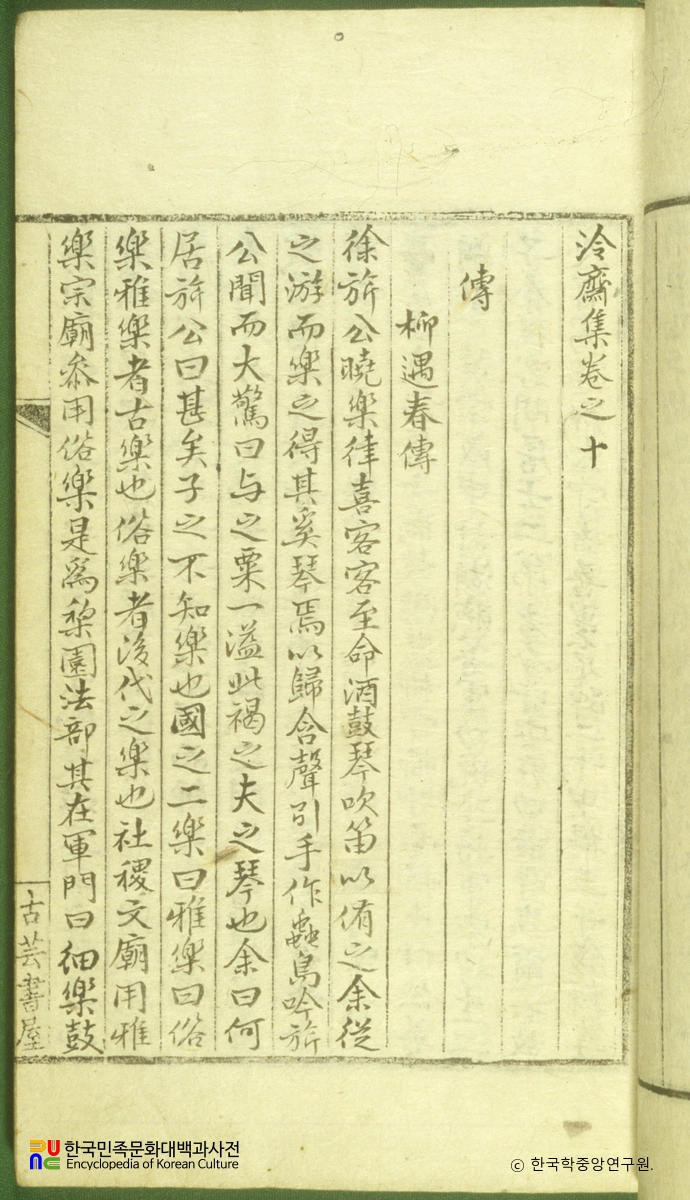 泠齋集卷之十
傳
柳遇春傳
徐旂公曉樂律喜客客至命酒鼓琴吹笛以侑之余從
之游而樂之得其奚琴焉以歸含聲引手作蟲鳥吟旂
公聞而大驚曰与之粟一溢此褐之夫之琴也余曰何
居旂公曰甚矣子之不知樂也國之二樂曰雅樂曰俗
樂雅樂者古樂也俗樂者後代之樂也社稷文廟用雅
樂宗廟叅用俗樂是爲棃園法部其在軍門曰細樂鼓
古芸書屋
한국민족문화대백과사전
Encyclopedia of Korean Culture
ⓒ 한국학중앙연구원.